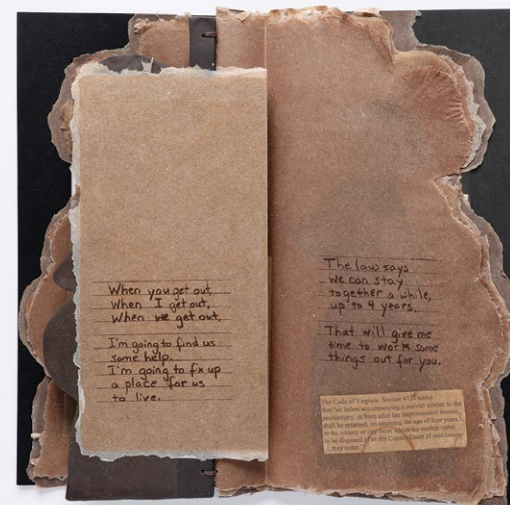 When you get out,
When I get out,
When we get out,
I'm going to find us
some help.
I'm going to fix up
a place for us
to live.
The law says
we can stay
together a while,
up to 4 years.
That will give me
time to work some
things out for you.
The Code of Virginia Section 4124 stated
that "an infant accompanying a convict mother to the
penitentiary, or born after her imprisonment therein,
shall be returned, on attaining the age of four years,
to the county or city from which the mother came,
to be disposed of as the County Court of said county
may order."